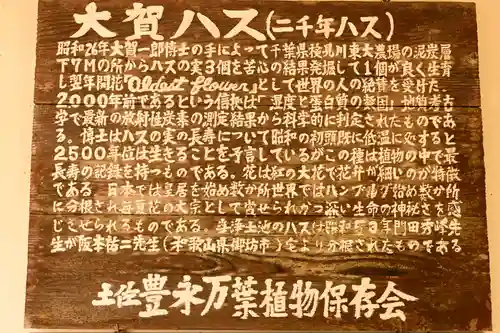 大賀ハス(二千年ハス)
昭和26年大賀一郎博士の手によって千葉県検見川東大農場の泥炭層
下7Mの所からハスの実3個を苦心の結果発掘して1個が良く生育
し翌年開花"Oldest flower"として世界の人の絶賛を受けた。
2000年前であるという信拠は「湿度と蛋白質の凝固」地質考古
学で最新の放射性炭素の測定結果から科学的に判定されたものであ
る。博士はハスの実の長寿について昭和の初頭既に低温に処すると
2500年位は生きることを予言しているがこの種は植物の中で最
長寿の記録を持つものである。花は紅の大花で花弁が細いのが特徴
である。日本では皇居を始め数か所世界ではハンブルグ始め数か所
に分根され毎夏花の大宗として賞せられかつ深い生命の神秘さを感
じさせられるものである。当浄土池のハスは昭和53年門田秀峰先
生が阪本祐二先生(和歌山県御坊市)宅より分根されたものである
土佐豊永万葉植物保存会